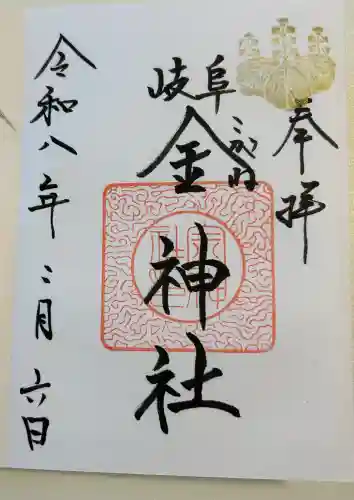 奉拝
岐阜
金神社
令和八年二月六日